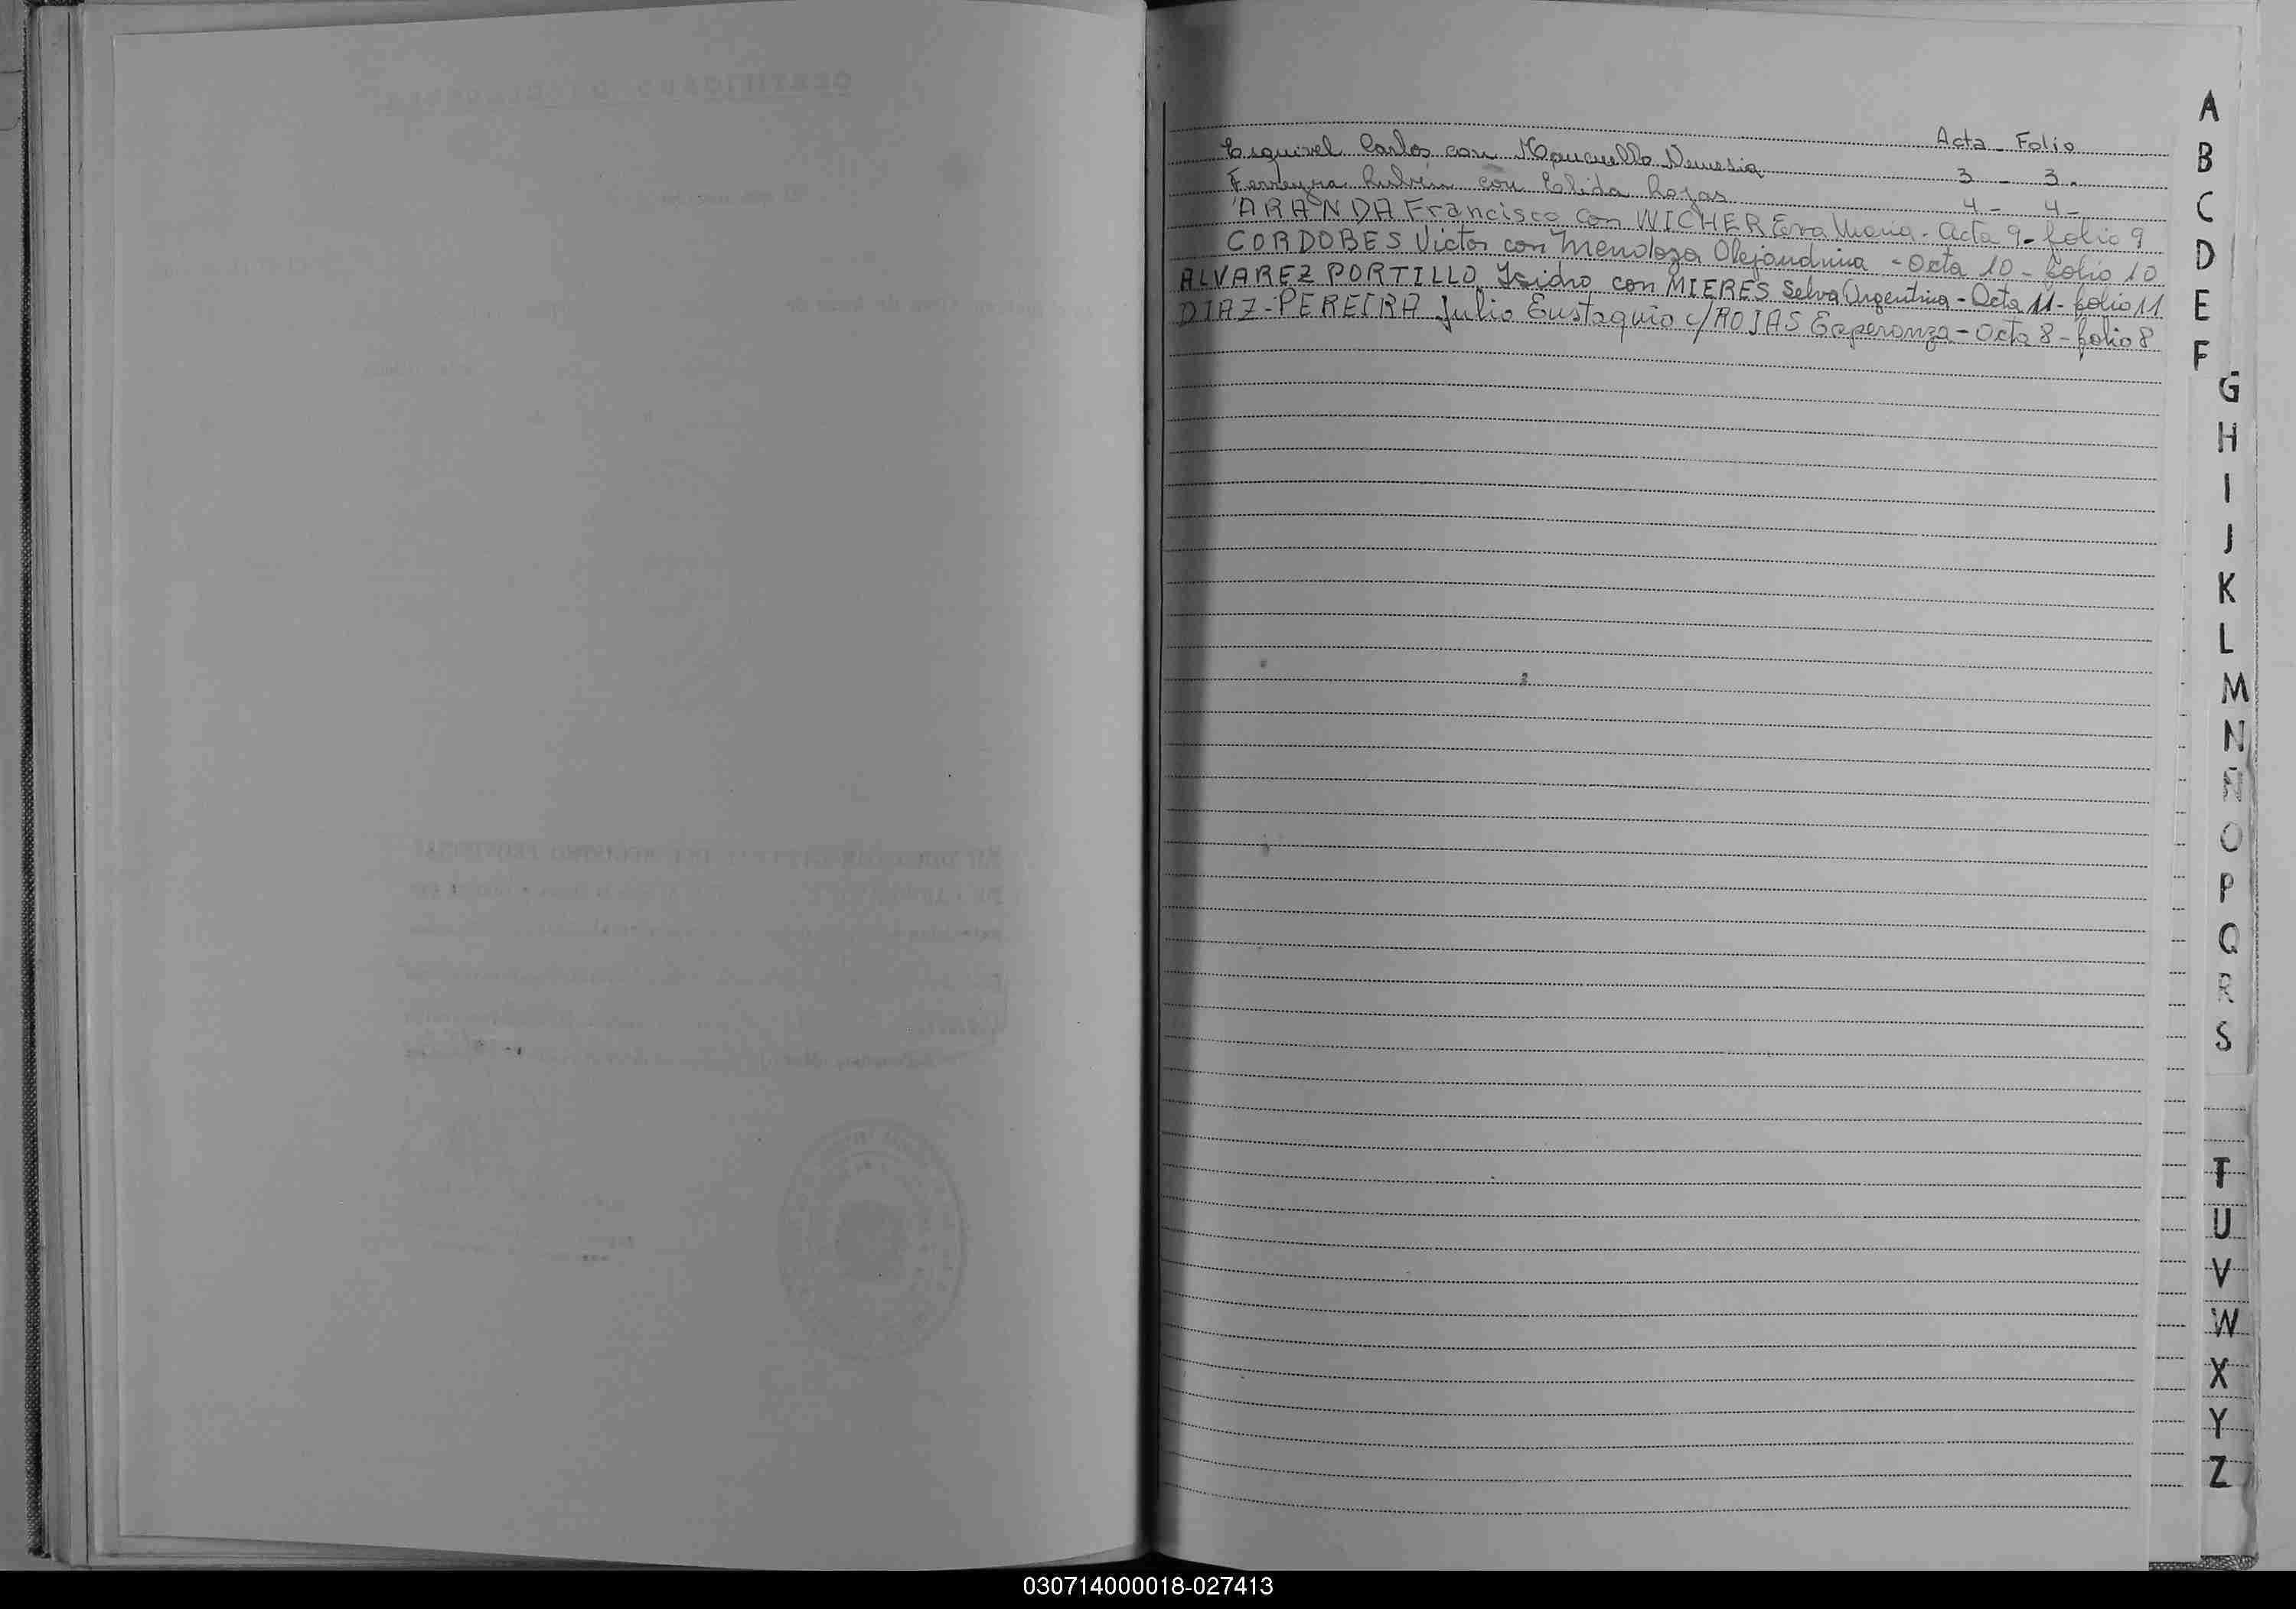 Acta - Folio
Esquivel Carlos con Mancuello Nemesia 3 - 3.
Ferreyra con Elida Rojas 4 - 4 -
ARANDA Francisco con WICHER Eva Maria - acta 9 - folio 9
CORDOBES Victor con Mendoza Alejandrina - acta 10 - folio 10
ALVAREZ PORTILLO Isidro con MIERES Selva Argentina - acta 11 - folio 11
DIAZ-PEREIRA Julio Eustaquio c/ROJAS Esperanza - acta 8 - folio 8
A
B
C
D
E
F
G
H
I
J
K
L
M
N
Ñ
O
P
Q
R
S
T
U
V
W
X
Y
Z
030714000018-027413